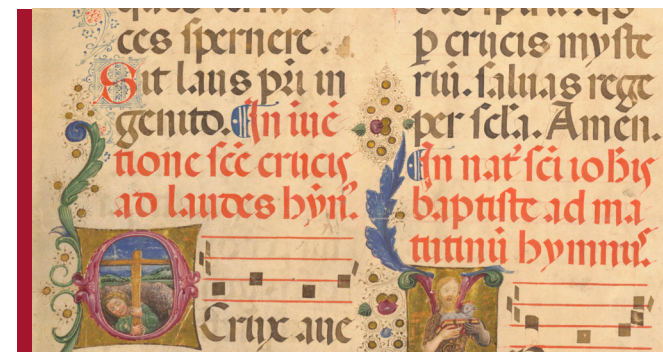 ces spernere.
Sit laus pri in
genito. In iuē
tione scē crucis
ad laudes hyn̄.
Crux ave
p crucis myste
rui. saluas rege
per scl'a. Amen.
In nat' sci iohis
baptiste ad ma
tutinū hymnus.